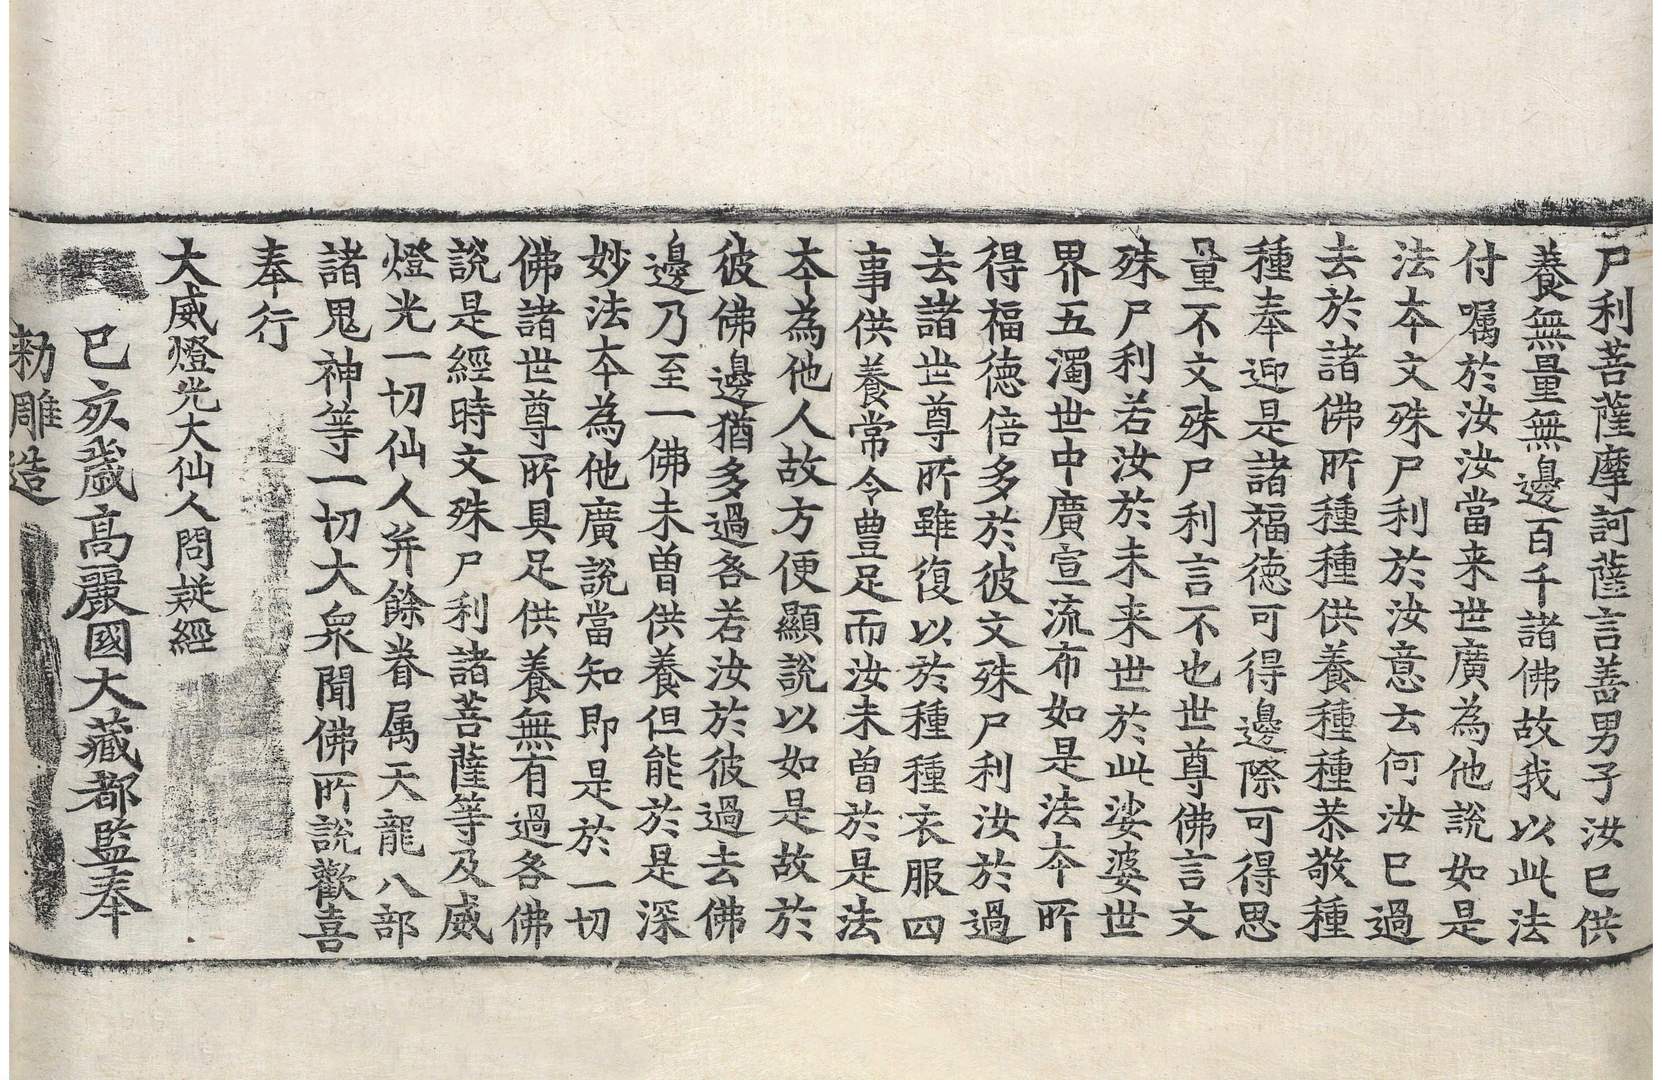 尸利菩薩摩訶薩言善男子汝已供
養無量無邊百千諸佛故我以此法
付嘱於汝汝當来世廣為他說如是
法夲文殊尸利於汝意云何汝已過
去於諸佛所種種供養種種恭敬種
種奉迎是諸福德可得邊際可得思
量不文殊尸利言不也世尊佛言文
殊尸利若汝於未来世於此娑婆世
界五濁世中廣宣流布如是法夲所
得福德倍多於彼文殊尸利汝於過
去諸世尊所雖復以於種種衣服四
事供養常令豊足而汝未曽於是法
夲為他人故方便顯說以如是故於
彼佛邊猶多過咎若汝於彼過去佛
邊乃至一佛未曽供養但能於是深
妙法夲為他廣說當知即是於一切
佛諸世尊所具足供養無有過各佛
說是經時文殊尸利諸菩薩等及威
燈光一切仙人并餘眷属天龍八部
諸鬼神等一切大衆聞佛所說歡喜
奉行
大威燈光大仙人問疑經
已亥歲高麗國大藏都監奉
勅雕造